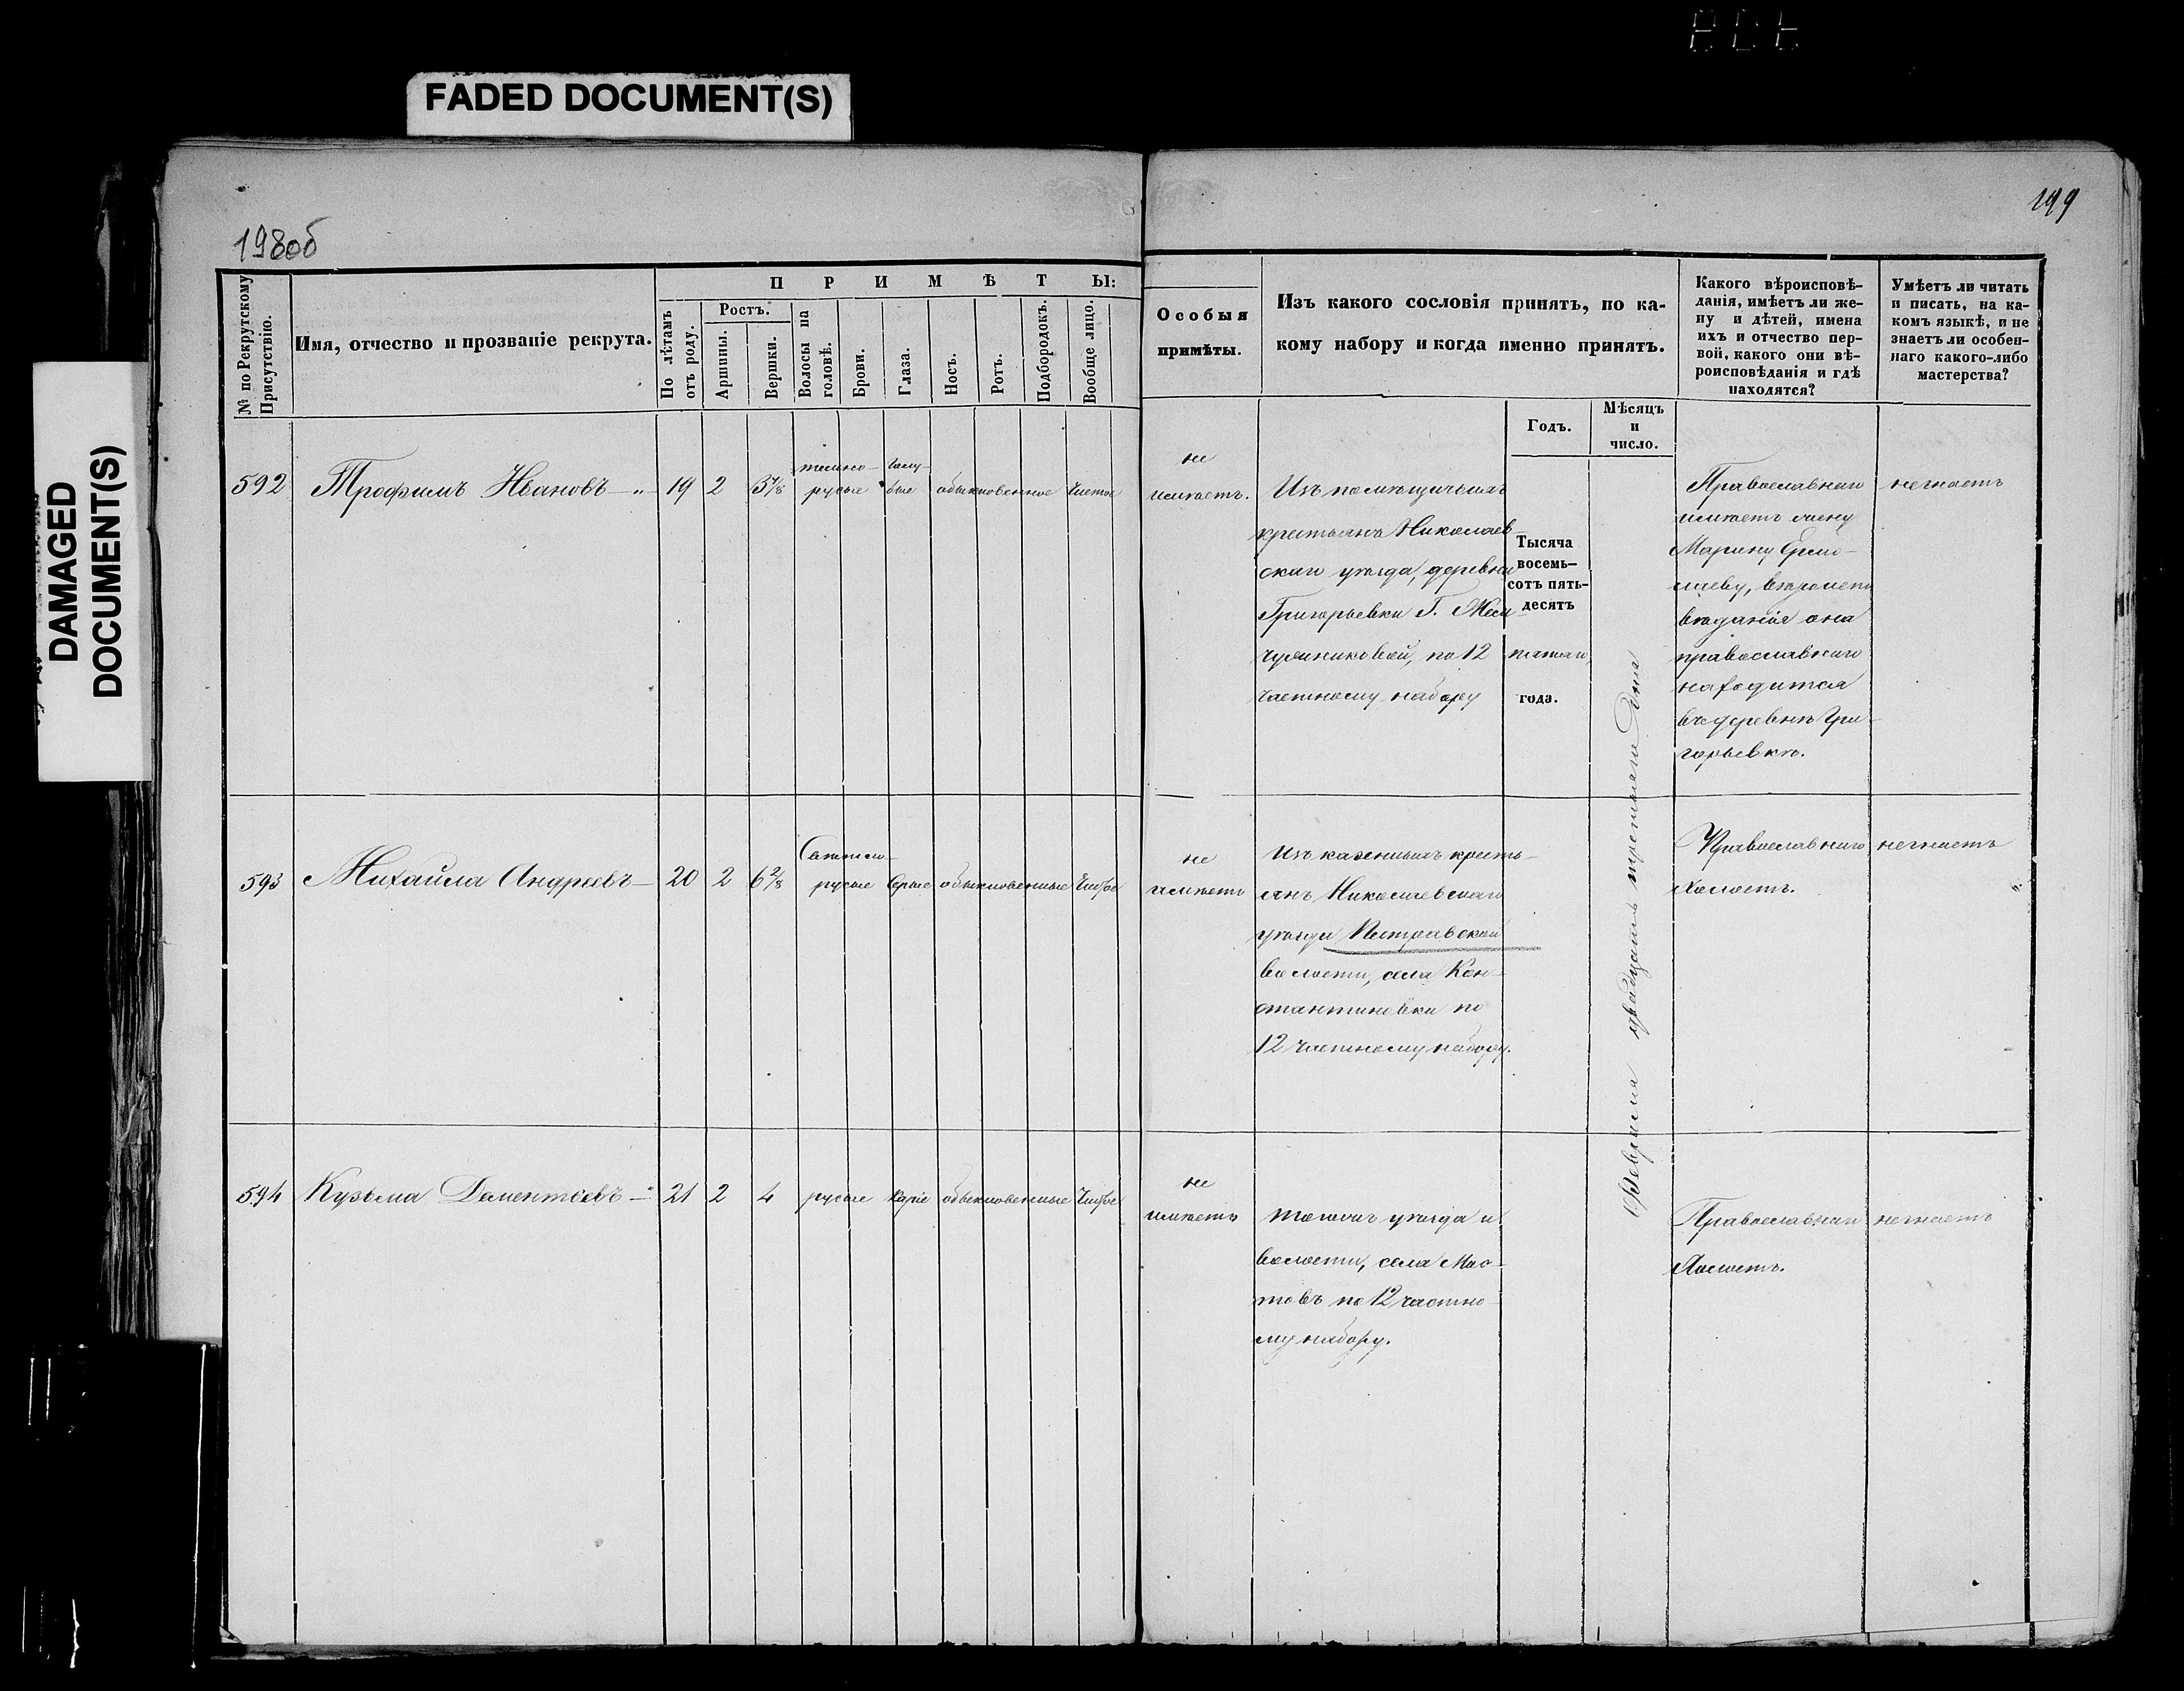 FADED DOCUMENT(S)
DAMAGED
DOCUMENT(S)
198об
199
№ по Рекрутскому
Присутствію.
Имя, отчество и прозваніе рекрута.
ПРИМѢТЫ:
По лѣтамъ
отъ роду.
Ростъ.
Аршины.
Вершки.
Волосы на
головѣ.
Брови.
Глаза.
Носъ.
Ротъ.
Подбородокъ.
Вообще лицо.
Особыя
примѣты.
Изъ какого сословія принятъ, по ка-
кому набору и когда именно принятъ.
Годъ.
Мѣсяцъ
и
число.
Какого вѣроисповѣ-
данія, имѣетъ ли же-
ну и дѣтей, имена
ихъ и отчество пер-
вой, какого они вѣ-
роисповѣданія и гдѣ
находятся?
Умѣетъ ли читать
и писать, на ка-
комъ языкѣ, и не
знаетъ ли особен-
наго какого-либо
мастерства?
592
Трофимъ Ивановъ
19
2
темно-
русые
голу-
бые
обыкновенное
чистое
не
имѣетъ.
Изъ помѣщичьихъ
крестьянъ Николаев-
скаго уѣзда, деревни
Григорьевки Г.
по 12
частному набору
Тысяча
восемь-
сотъ пять-
десятъ
пятаго
года.
Февраля двадцать третьяго дня
Православнаго
имѣетъ жену
Марину Ермо-
лаеву, вѣроиспо
вѣданія она
православнаго
находится
въ деревнѣ Гри-
горьевкѣ.
незнаетъ
593
Михайла Андреевъ
20
2
6 2/8
Светло-
русые
серые
обыкновенные
чистое
не
имѣетъ
Изъ казенныхъ кресть-
янъ Николаевскаго
уѣзда Пестравской
волости, села Кон-
стантиновки по
12 частному набору.
Православнаго
Холостъ.
незнаетъ
594
Кузьма Дементьевъ
21
2
4
русые
каріе
обыкновенные
чистое
не
имѣетъ
тогожъ уѣзда и
волости, села Мос-
товъ по 12 частно-
му набору.
Православнаго
Холостъ.
незнаетъ